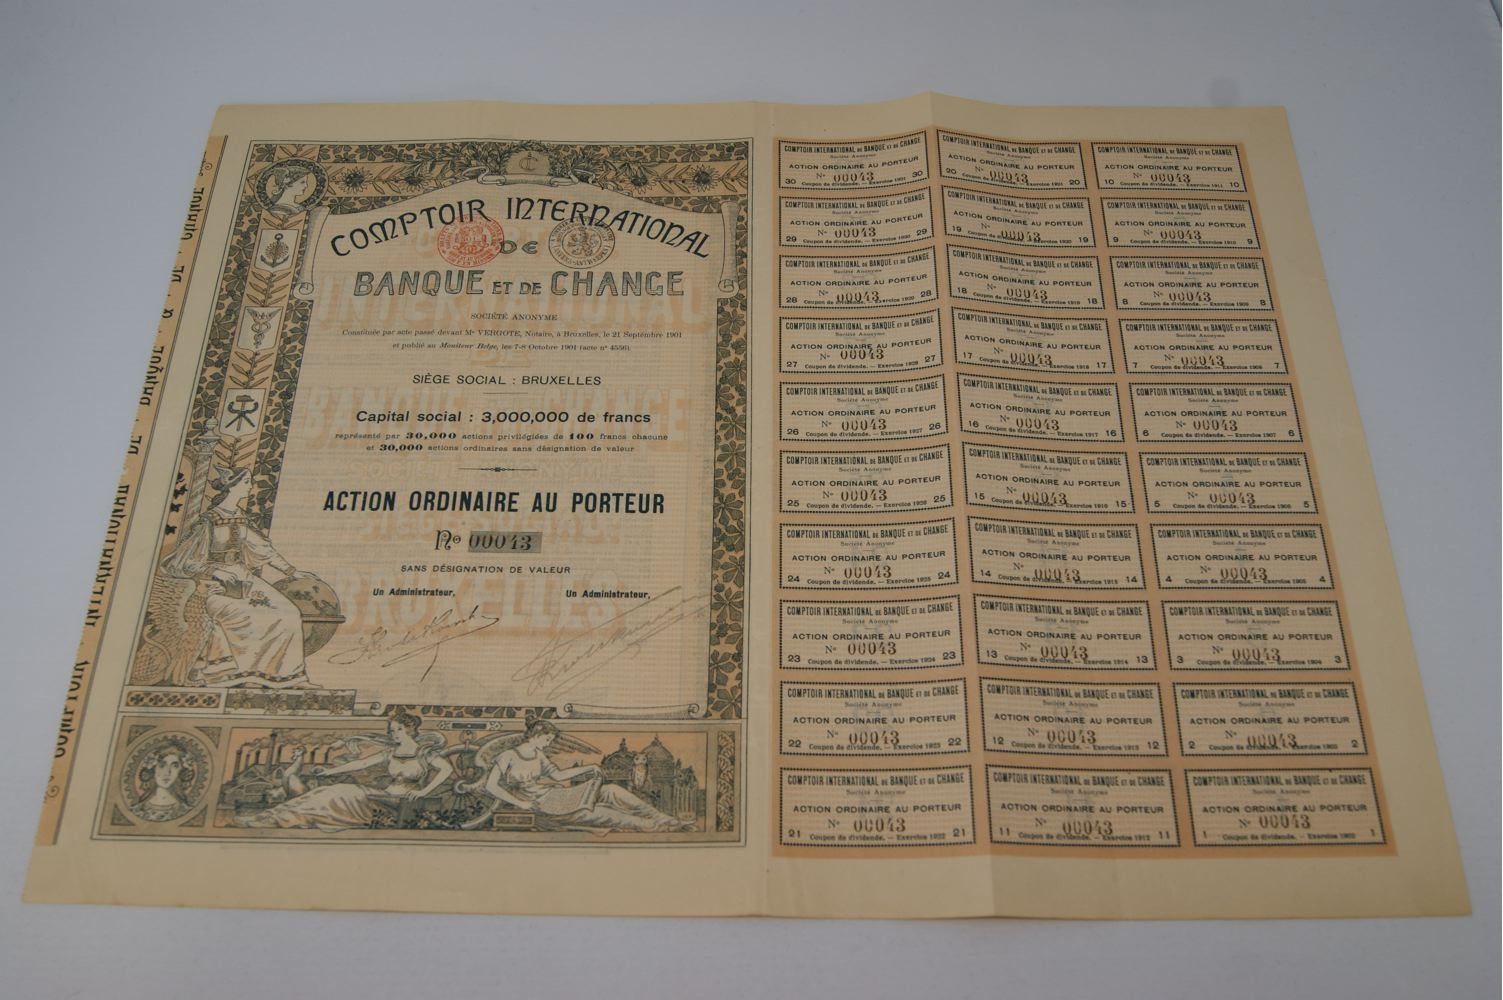 COMPTOIR INTERNATIONAL DE BANQUE & DE CHANGE
COMPTOIR INTERNATIONAL
DE
BANQUE ET DE CHANGE
SOCIÉTÉ ANONYME
Constituée par acte passé devant Me VERGOTE, Notaire, à Bruxelles, le 21 Septembre 1901
et publié au Moniteur Belge, les 7-8 Octobre 1901 (acte no 4556).
SIÈGE SOCIAL : BRUXELLES
Capital social : 3,000,000 de francs
représenté par 30,000 actions privilégiées de 100 francs chacune
et 30,000 actions ordinaires sans désignation de valeur
ACTION ORDINAIRE AU PORTEUR
No 00043
SANS DÉSIGNATION DE VALEUR
Un Administrateur, Un Administrateur,
COMPTOIR INTERNATIONAL DE BANQUE ET DE CHANGE
Société Anonyme
ACTION ORDINAIRE AU PORTEUR
No 00043
30 Coupon de dividende. — Exercice 1931 30
COMPTOIR INTERNATIONAL DE BANQUE ET DE CHANGE
Société Anonyme
ACTION ORDINAIRE AU PORTEUR
No 00043
20 Coupon de dividende. — Exercice 1921 20
COMPTOIR INTERNATIONAL DE BANQUE ET DE CHANGE
Société Anonyme
ACTION ORDINAIRE AU PORTEUR
No 00043
10 Coupon de dividende. — Exercice 1911 10
COMPTOIR INTERNATIONAL DE BANQUE ET DE CHANGE
Société Anonyme
ACTION ORDINAIRE AU PORTEUR
No 00043
29 Coupon de dividende. — Exercice 1930 29
COMPTOIR INTERNATIONAL DE BANQUE ET DE CHANGE
Société Anonyme
ACTION ORDINAIRE AU PORTEUR
No 00043
19 Coupon de dividende. — Exercice 1920 19
COMPTOIR INTERNATIONAL DE BANQUE ET DE CHANGE
Société Anonyme
ACTION ORDINAIRE AU PORTEUR
No 00043
9 Coupon de dividende. — Exercice 1910 9
COMPTOIR INTERNATIONAL DE BANQUE ET DE CHANGE
Société Anonyme
ACTION ORDINAIRE AU PORTEUR
No 00043
28 Coupon de dividende. — Exercice 1929 28
COMPTOIR INTERNATIONAL DE BANQUE ET DE CHANGE
Société Anonyme
ACTION ORDINAIRE AU PORTEUR
No 00043
18 Coupon de dividende. — Exercice 1919 18
COMPTOIR INTERNATIONAL DE BANQUE ET DE CHANGE
Société Anonyme
ACTION ORDINAIRE AU PORTEUR
No 00043
8 Coupon de dividende. — Exercice 1909 8
COMPTOIR INTERNATIONAL DE BANQUE ET DE CHANGE
Société Anonyme
ACTION ORDINAIRE AU PORTEUR
No 00043
27 Coupon de dividende. — Exercice 1928 27
COMPTOIR INTERNATIONAL DE BANQUE ET DE CHANGE
Société Anonyme
ACTION ORDINAIRE AU PORTEUR
No 00043
17 Coupon de dividende. — Exercice 1918 17
COMPTOIR INTERNATIONAL DE BANQUE ET DE CHANGE
Société Anonyme
ACTION ORDINAIRE AU PORTEUR
No 00043
7 Coupon de dividende. — Exercice 1908 7
COMPTOIR INTERNATIONAL DE BANQUE ET DE CHANGE
Société Anonyme
ACTION ORDINAIRE AU PORTEUR
No 00043
26 Coupon de dividende. — Exercice 1927 26
COMPTOIR INTERNATIONAL DE BANQUE ET DE CHANGE
Société Anonyme
ACTION ORDINAIRE AU PORTEUR
No 00043
16 Coupon de dividende. — Exercice 1917 16
COMPTOIR INTERNATIONAL DE BANQUE ET DE CHANGE
Société Anonyme
ACTION ORDINAIRE AU PORTEUR
No 00043
6 Coupon de dividende. — Exercice 1907 6
COMPTOIR INTERNATIONAL DE BANQUE ET DE CHANGE
Société Anonyme
ACTION ORDINAIRE AU PORTEUR
No 00043
25 Coupon de dividende. — Exercice 1926 25
COMPTOIR INTERNATIONAL DE BANQUE ET DE CHANGE
Société Anonyme
ACTION ORDINAIRE AU PORTEUR
No 00043
15 Coupon de dividende. — Exercice 1916 15
COMPTOIR INTERNATIONAL DE BANQUE ET DE CHANGE
Société Anonyme
ACTION ORDINAIRE AU PORTEUR
No 00043
5 Coupon de dividende. — Exercice 1906 5
COMPTOIR INTERNATIONAL DE BANQUE ET DE CHANGE
Société Anonyme
ACTION ORDINAIRE AU PORTEUR
No 00043
24 Coupon de dividende. — Exercice 1925 24
COMPTOIR INTERNATIONAL DE BANQUE ET DE CHANGE
Société Anonyme
ACTION ORDINAIRE AU PORTEUR
No 00043
14 Coupon de dividende. — Exercice 1915 14
COMPTOIR INTERNATIONAL DE BANQUE ET DE CHANGE
Société Anonyme
ACTION ORDINAIRE AU PORTEUR
No 00043
4 Coupon de dividende. — Exercice 1905 4
COMPTOIR INTERNATIONAL DE BANQUE ET DE CHANGE
Société Anonyme
ACTION ORDINAIRE AU PORTEUR
No 00043
23 Coupon de dividende. — Exercice 1924 23
COMPTOIR INTERNATIONAL DE BANQUE ET DE CHANGE
Société Anonyme
ACTION ORDINAIRE AU PORTEUR
No 00043
13 Coupon de dividende. — Exercice 1914 13
COMPTOIR INTERNATIONAL DE BANQUE ET DE CHANGE
Société Anonyme
ACTION ORDINAIRE AU PORTEUR
No 00043
3 Coupon de dividende. — Exercice 1904 3
COMPTOIR INTERNATIONAL DE BANQUE ET DE CHANGE
Société Anonyme
ACTION ORDINAIRE AU PORTEUR
No 00043
22 Coupon de dividende. — Exercice 1923 22
COMPTOIR INTERNATIONAL DE BANQUE ET DE CHANGE
Société Anonyme
ACTION ORDINAIRE AU PORTEUR
No 00043
12 Coupon de dividende. — Exercice 1913 12
COMPTOIR INTERNATIONAL DE BANQUE ET DE CHANGE
Société Anonyme
ACTION ORDINAIRE AU PORTEUR
No 00043
2 Coupon de dividende. — Exercice 1903 2
COMPTOIR INTERNATIONAL DE BANQUE ET DE CHANGE
Société Anonyme
ACTION ORDINAIRE AU PORTEUR
No 00043
21 Coupon de dividende. — Exercice 1922 21
COMPTOIR INTERNATIONAL DE BANQUE ET DE CHANGE
Société Anonyme
ACTION ORDINAIRE AU PORTEUR
No 00043
11 Coupon de dividende. — Exercice 1912 11
COMPTOIR INTERNATIONAL DE BANQUE ET DE CHANGE
Société Anonyme
ACTION ORDINAIRE AU PORTEUR
No 00043
1 Coupon de dividende. — Exercice 1902 1